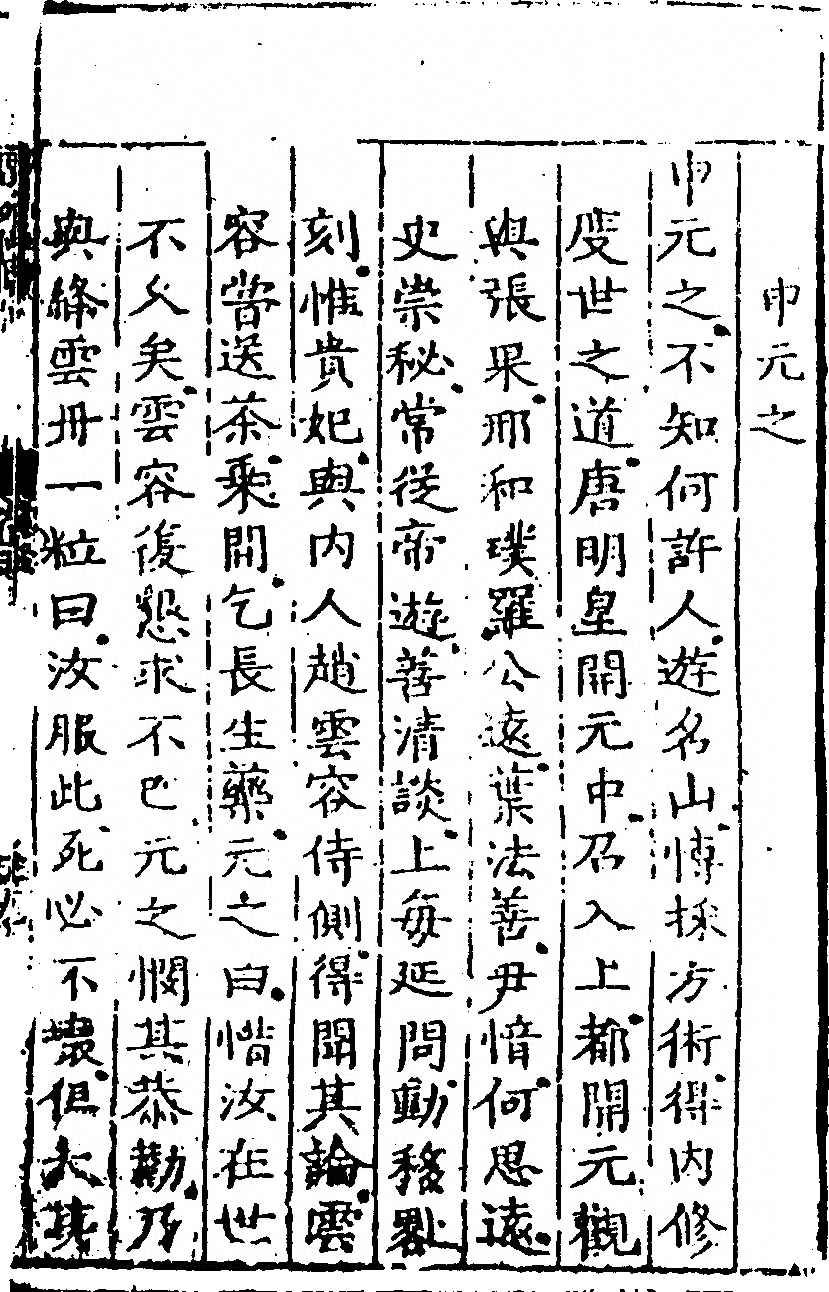 申元之
申元之不知何許人遊名山博採方術得内修
度世之道唐明皇開元中召入上都開元觀
與張果邢和璞羅公遠葉法善尹愔何思遠
史崇秘常從帝遊善清談上毎延問動移晷
刻惟貴妃與内人趙雲容侍側得聞其論雲
容甞送茶乘間乞長生藥元之曰惜汝在世
不乆矣雲容復懇求不巳元之憫其恭勤乃
與絳雲丹一粒曰汝服此死必不壞但大其